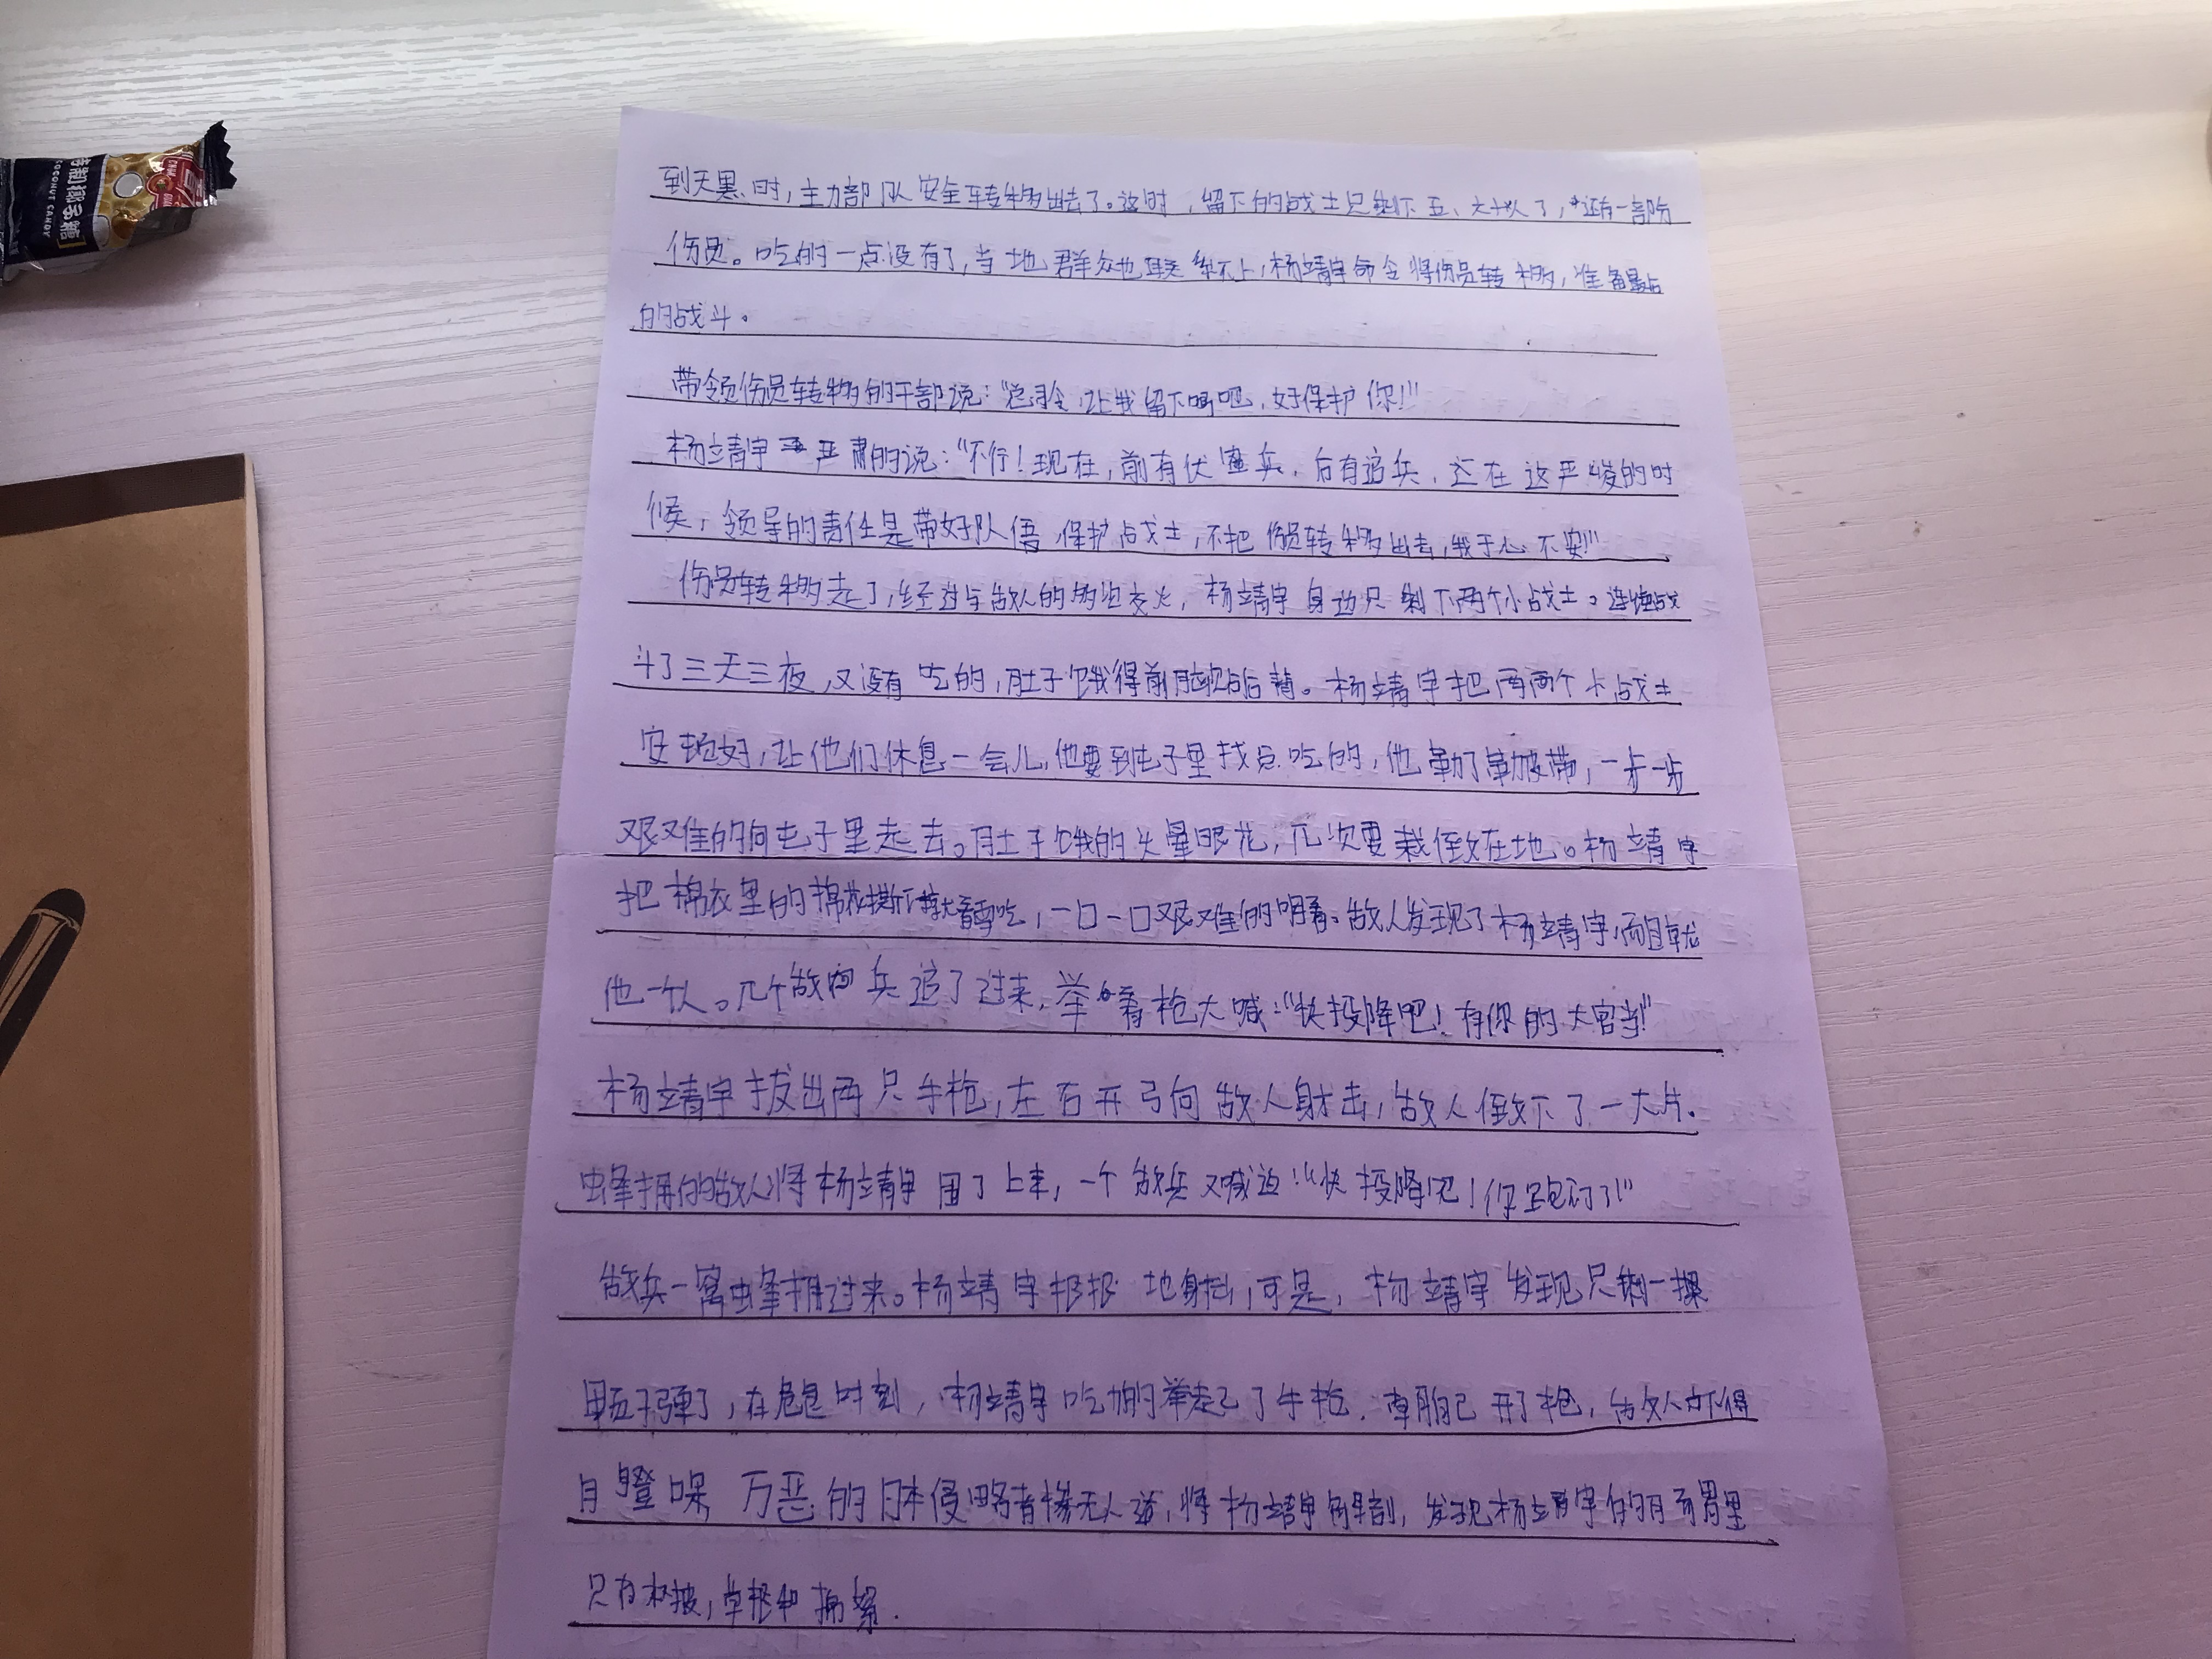 特制椰子糖
COCONUT CANDY
到天黑时，主力部队安全转移出去了。这时，留下的战士只剩下五、六十人了，还有一部份
伤员。吃的一点没有了，当地群众也联系不上，杨靖宇命令将伤员转移，准备最后
的战斗。
带领伤员转移的干部说：“总司令，让我留下吧，好保护你！”
杨靖宇严肃的说：“不行！现在，前有伏兵，后有追兵，还在这严峻的时
候，领导的责任是带好队伍，保护战士，不把伤员转移出去，我于心不安！”
伤员转移走了，经过与敌人的多次交火，杨靖宇身边只剩下两个小战士。连续战
斗了三天三夜，又没有吃的，肚子饿得前胸贴后背。杨靖宇把两个小战士
安顿好，让他们休息一会儿，他要到屯子里找点吃的，他勒了勒腰带，一步一步
艰难的向屯子里走去。肚子饿的头晕眼花，几次要栽倒在地。杨靖宇
把棉衣里的棉花撕下就着雪吃，一口一口艰难的咽着。敌人发现了杨靖宇，而且就
他一个人。几个敌兵追了过来，举着枪大喊：“快投降吧！有你的大官当”
杨靖宇拔出两只手枪，左右开弓向敌人射击，敌人倒下了一大片。
蜂拥的敌人将杨靖宇围了上来，一个敌兵又喊道：“快投降吧！你跑不了”
敌兵一窝蜂拥过来。杨靖宇狠狠地射击，可是，杨靖宇发现只剩一
子弹了，在危急时刻，杨靖宇吃力的举起了手枪，自己开了枪，敌人不得
目瞪口呆 万恶的日本侵略者惨无人道，将杨靖宇解剖，发现杨靖宇的肠胃里
只有树皮，草根和棉絮.